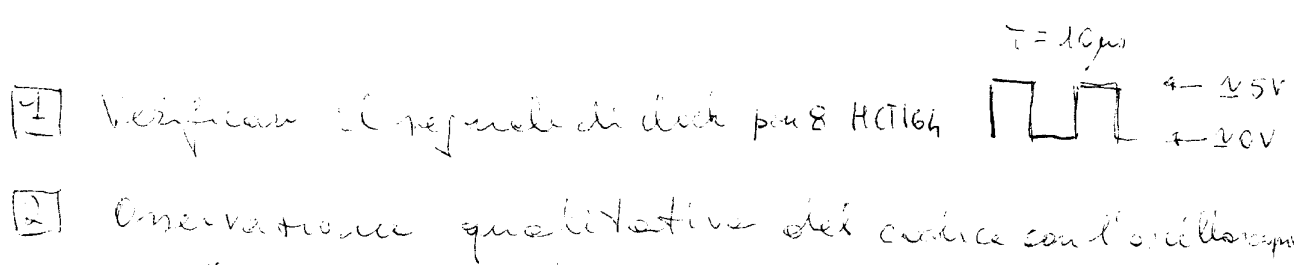 T = 10 μs
1 Verificare il segnale di clock pin 8 HCT164 ← ≃ 5V
← ≃ 0V
2 Osservazione qualitativa del codice con l'oscilloscopio